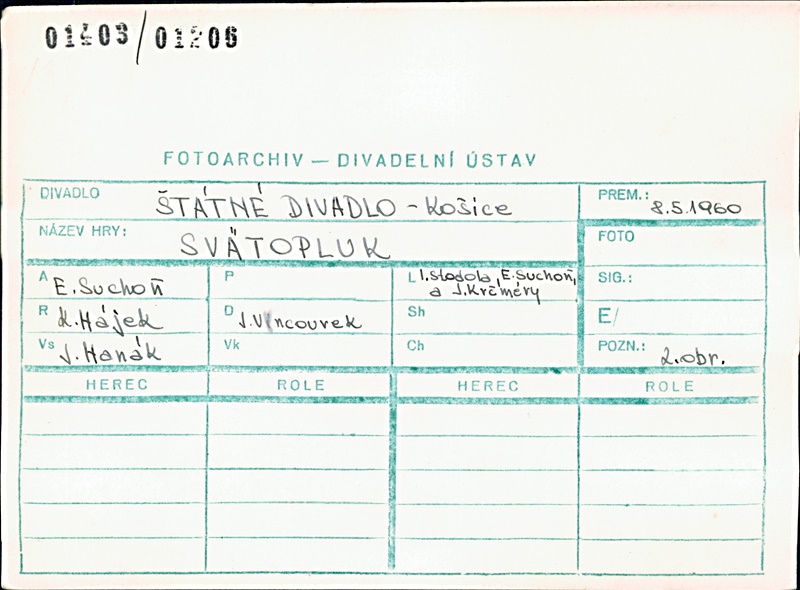 01403/01206
FOTOARCHIV — DIVADELNÍ ÚSTAV
DIVADLO ŠTÁTNÉ DIVADLO - Košice
PREM.: 8.5.1960
NÁZEV HRY: SVÄTOPLUK
FOTO
A E. Suchoň
P
L I. Stodola, E. Suchoň,
a J. Krčméry
SIG.:
R K. Hájek
D J. Vincourek
Sh
E/
Vs J. Hanák
Vk
Ch
POZN.: 2. obr.
HEREC ROLE HEREC ROLE